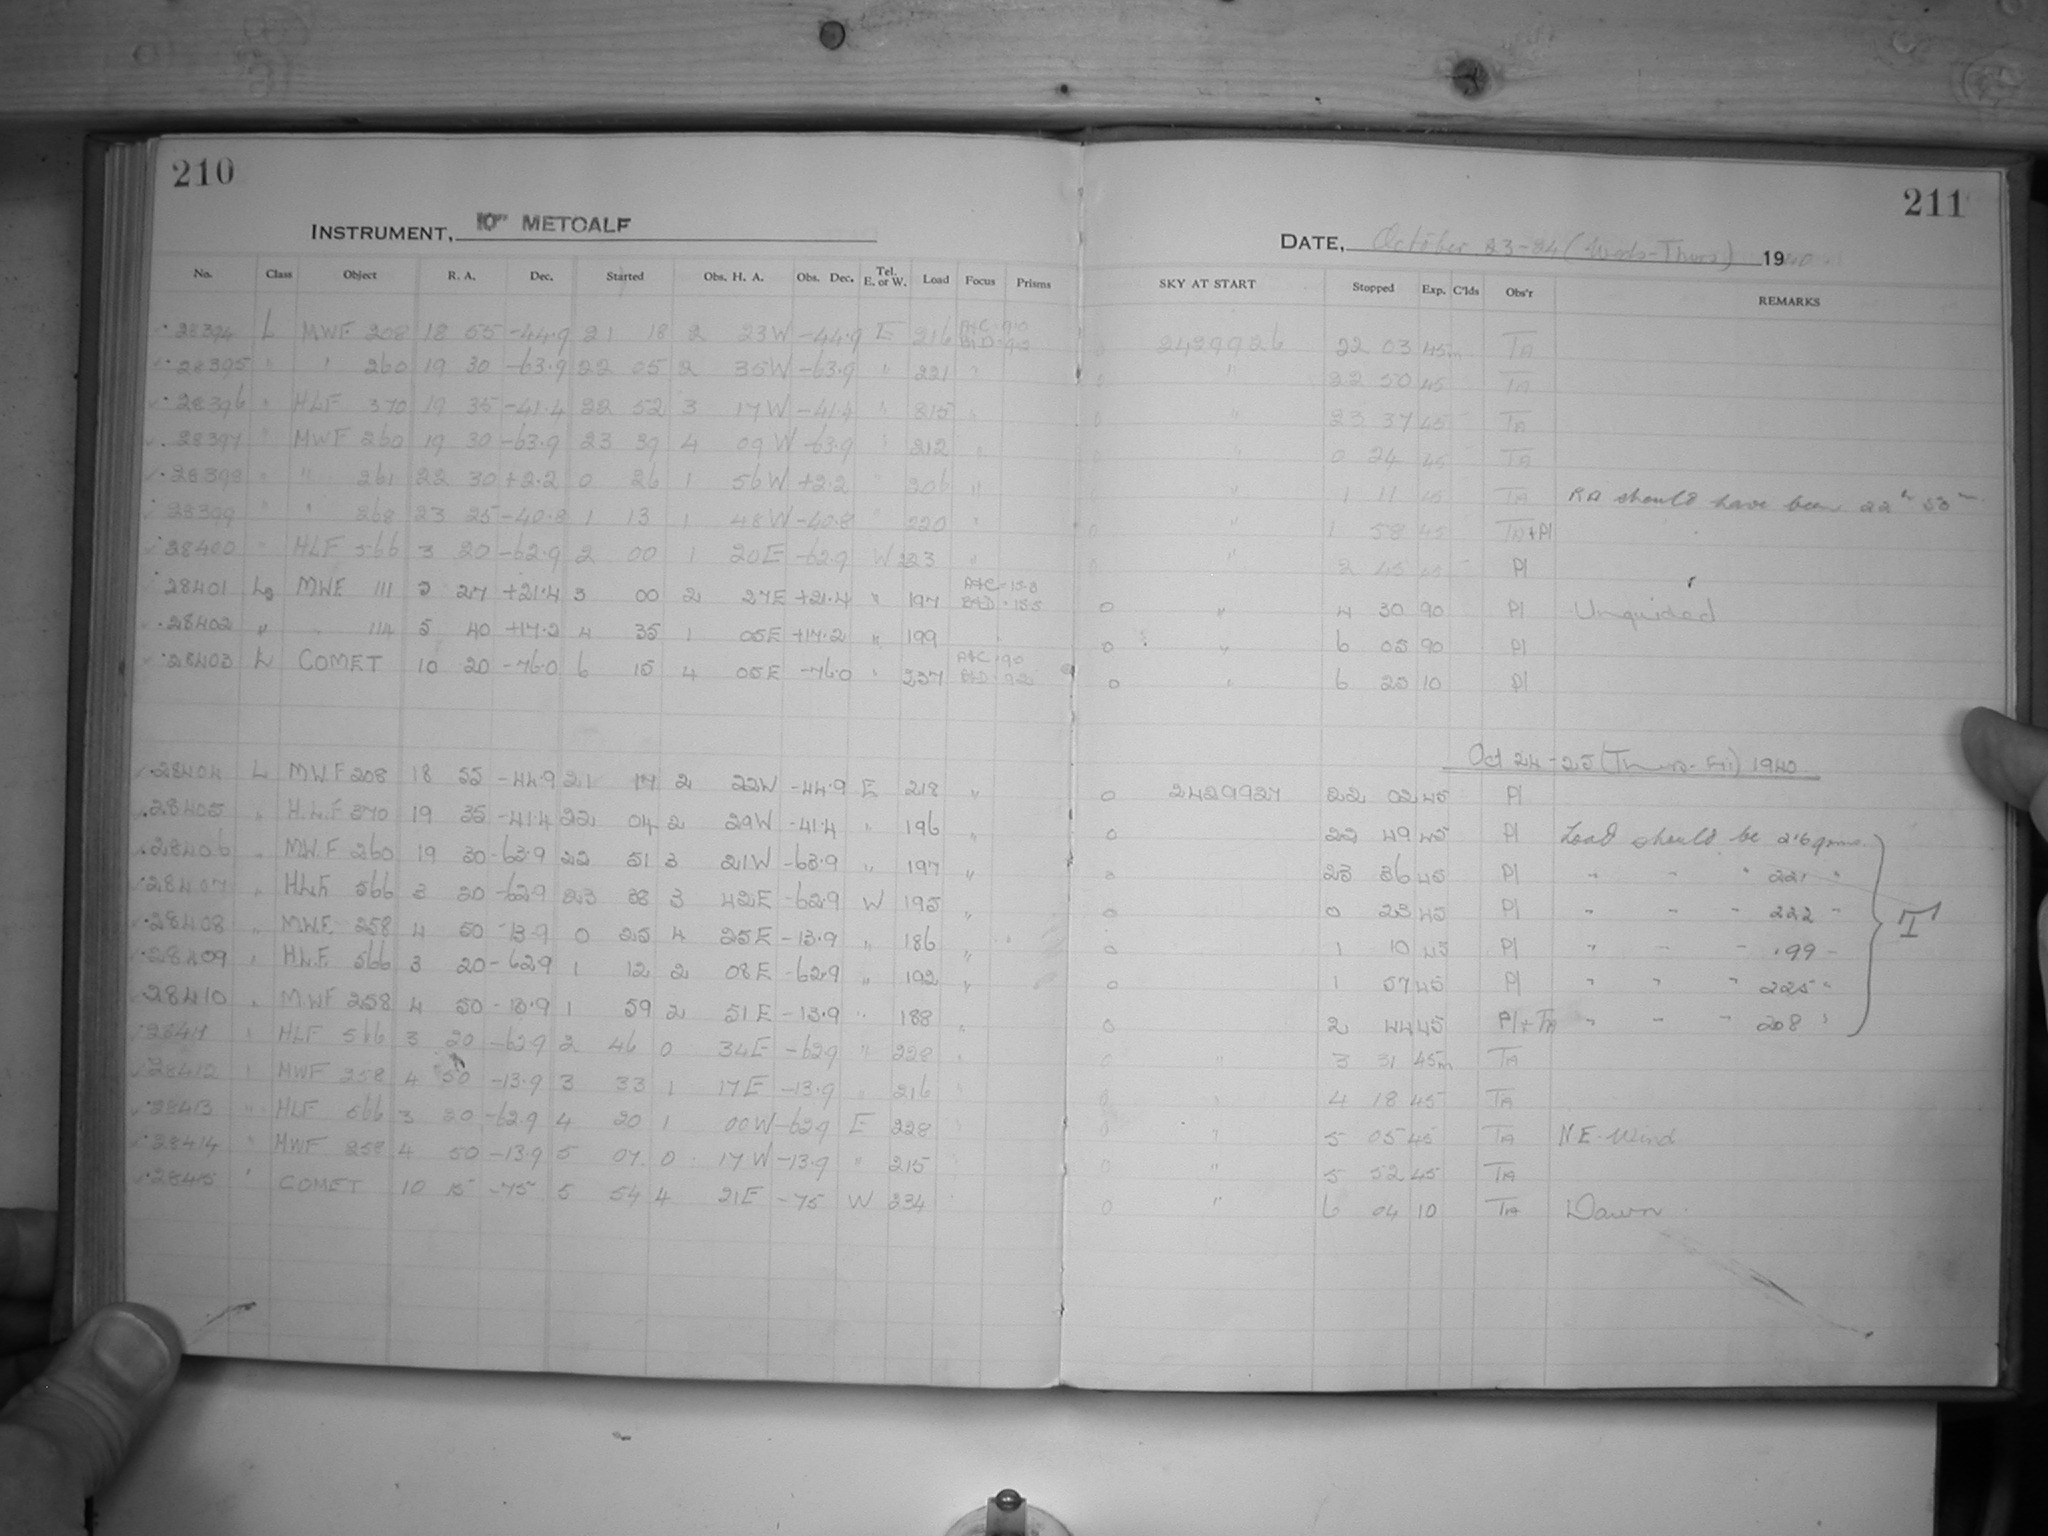 210
INSTRUMENT, 10" METCALF
No. Class Object R. A. Dec. Started Obs. H. A. Obs. Dec. Tel. E. or W. Load Focus Prisms
28394 L MWF 208 18 55 -44.9 21 18 2 23W -44.9 E 216 A+C 9.0 B+D 9.2
28395 " " 260 19 30 -63.9 22 05 2 35W -63.9 " 221 "
28396 " HLF 370 19 35 -41.4 22 52 3 17W -41.4 " 215 "
28397 " MWF 260 19 30 -63.9 23 39 4 09W -63.9 " 212 "
28398 " " 261 22 30 +2.2 0 26 1 56W +2.2 " 206 "
28399 " " 268 23 25 -40.8 1 13 1 48W -40.8 " 220 "
28400 " HLF 566 3 20 -62.9 2 00 1 20E -62.9 W 223 "
28401 MWF 111 27 +21.4 3 00 2 27E +21.4 " 197 A+C 15.3 B+D 15.5
28402 " 114 5 40 +17.2 4 35 1 05E +17.2 " 199
28403 L COMET 10 20 -76.0 6 15 4 05E -76.0 " 237 A+C 9.0 B+D 9.2
28404 L MWF 208 18 55 -44.9 21 17 2 22W -44.9 E 218 "
28405 " H.L.F 370 19 35 -41.4 22 04 2 29W -41.4 " 196 "
28406 " MW.F 260 19 30 -63.9 22 51 3 21W -63.9 " 197 "
28407 " HLF. 566 3 20 -62.9 23 38 3 42E -62.9 W 195 "
28408 " MWF. 258 4 50 -13.9 0 25 4 25E -13.9 " 186 "
28409 " HLF. 566 3 20 -62.9 1 12 2 08E -62.9 " 192 "
28410 " MWF 258 4 50 -13.9 1 59 2 51E -13.9 " 188 "
28411 " HLF 566 3 20 -62.9 2 46 0 34E -62.9 " 228 "
28412 " MWF 258 4 50 -13.9 3 33 1 17E -13.9 " 216 "
28413 " HLF 566 3 20 -62.9 4 20 1 00W -62.9 E 228 "
28414 " MWF 258 4 50 -13.9 5 07 0 17W -13.9 " 215 "
28415 " COMET 10 15 -75 5 54 4 21E -75 W 234 "
211
DATE, October 23-24 (Weds-Thurs) 1940
SKY AT START Stopped Exp. C'lds Obs'r REMARKS
0 2429926 22 03 45m TA
0 " 22 50 45 TA
0 " 23 37 45 TA
0 " 0 24 45 TA
0 " 1 11 45 TA RA should have been 22h 53m
0 " 1 58 45 TA+Pl
0 " 2 45 45 Pl
0 " 4 30 90 Pl Unguided
0 " 6 05 90 Pl
0 " 6 25 10 Pl
Oct 24-25 (Thurs-Fri) 1940
0 2429927 22 02 45 Pl
0 22 49 45 Pl Load should be 216 gms.
0 23 36 45 Pl " " " 221 "
0 0 23 45 Pl " " " 222 "
0 1 10 45 Pl " " " 199 "
0 1 57 45 Pl " " " 225 "
0 2 44 45 Pl+TA " " " 208 "
T
0 " 3 31 45m TA
0 " 4 18 45 TA
0 " 5 05 45 TA NE Wind
0 " 5 52 45 TA
0 " 6 04 10 TA Dawn.